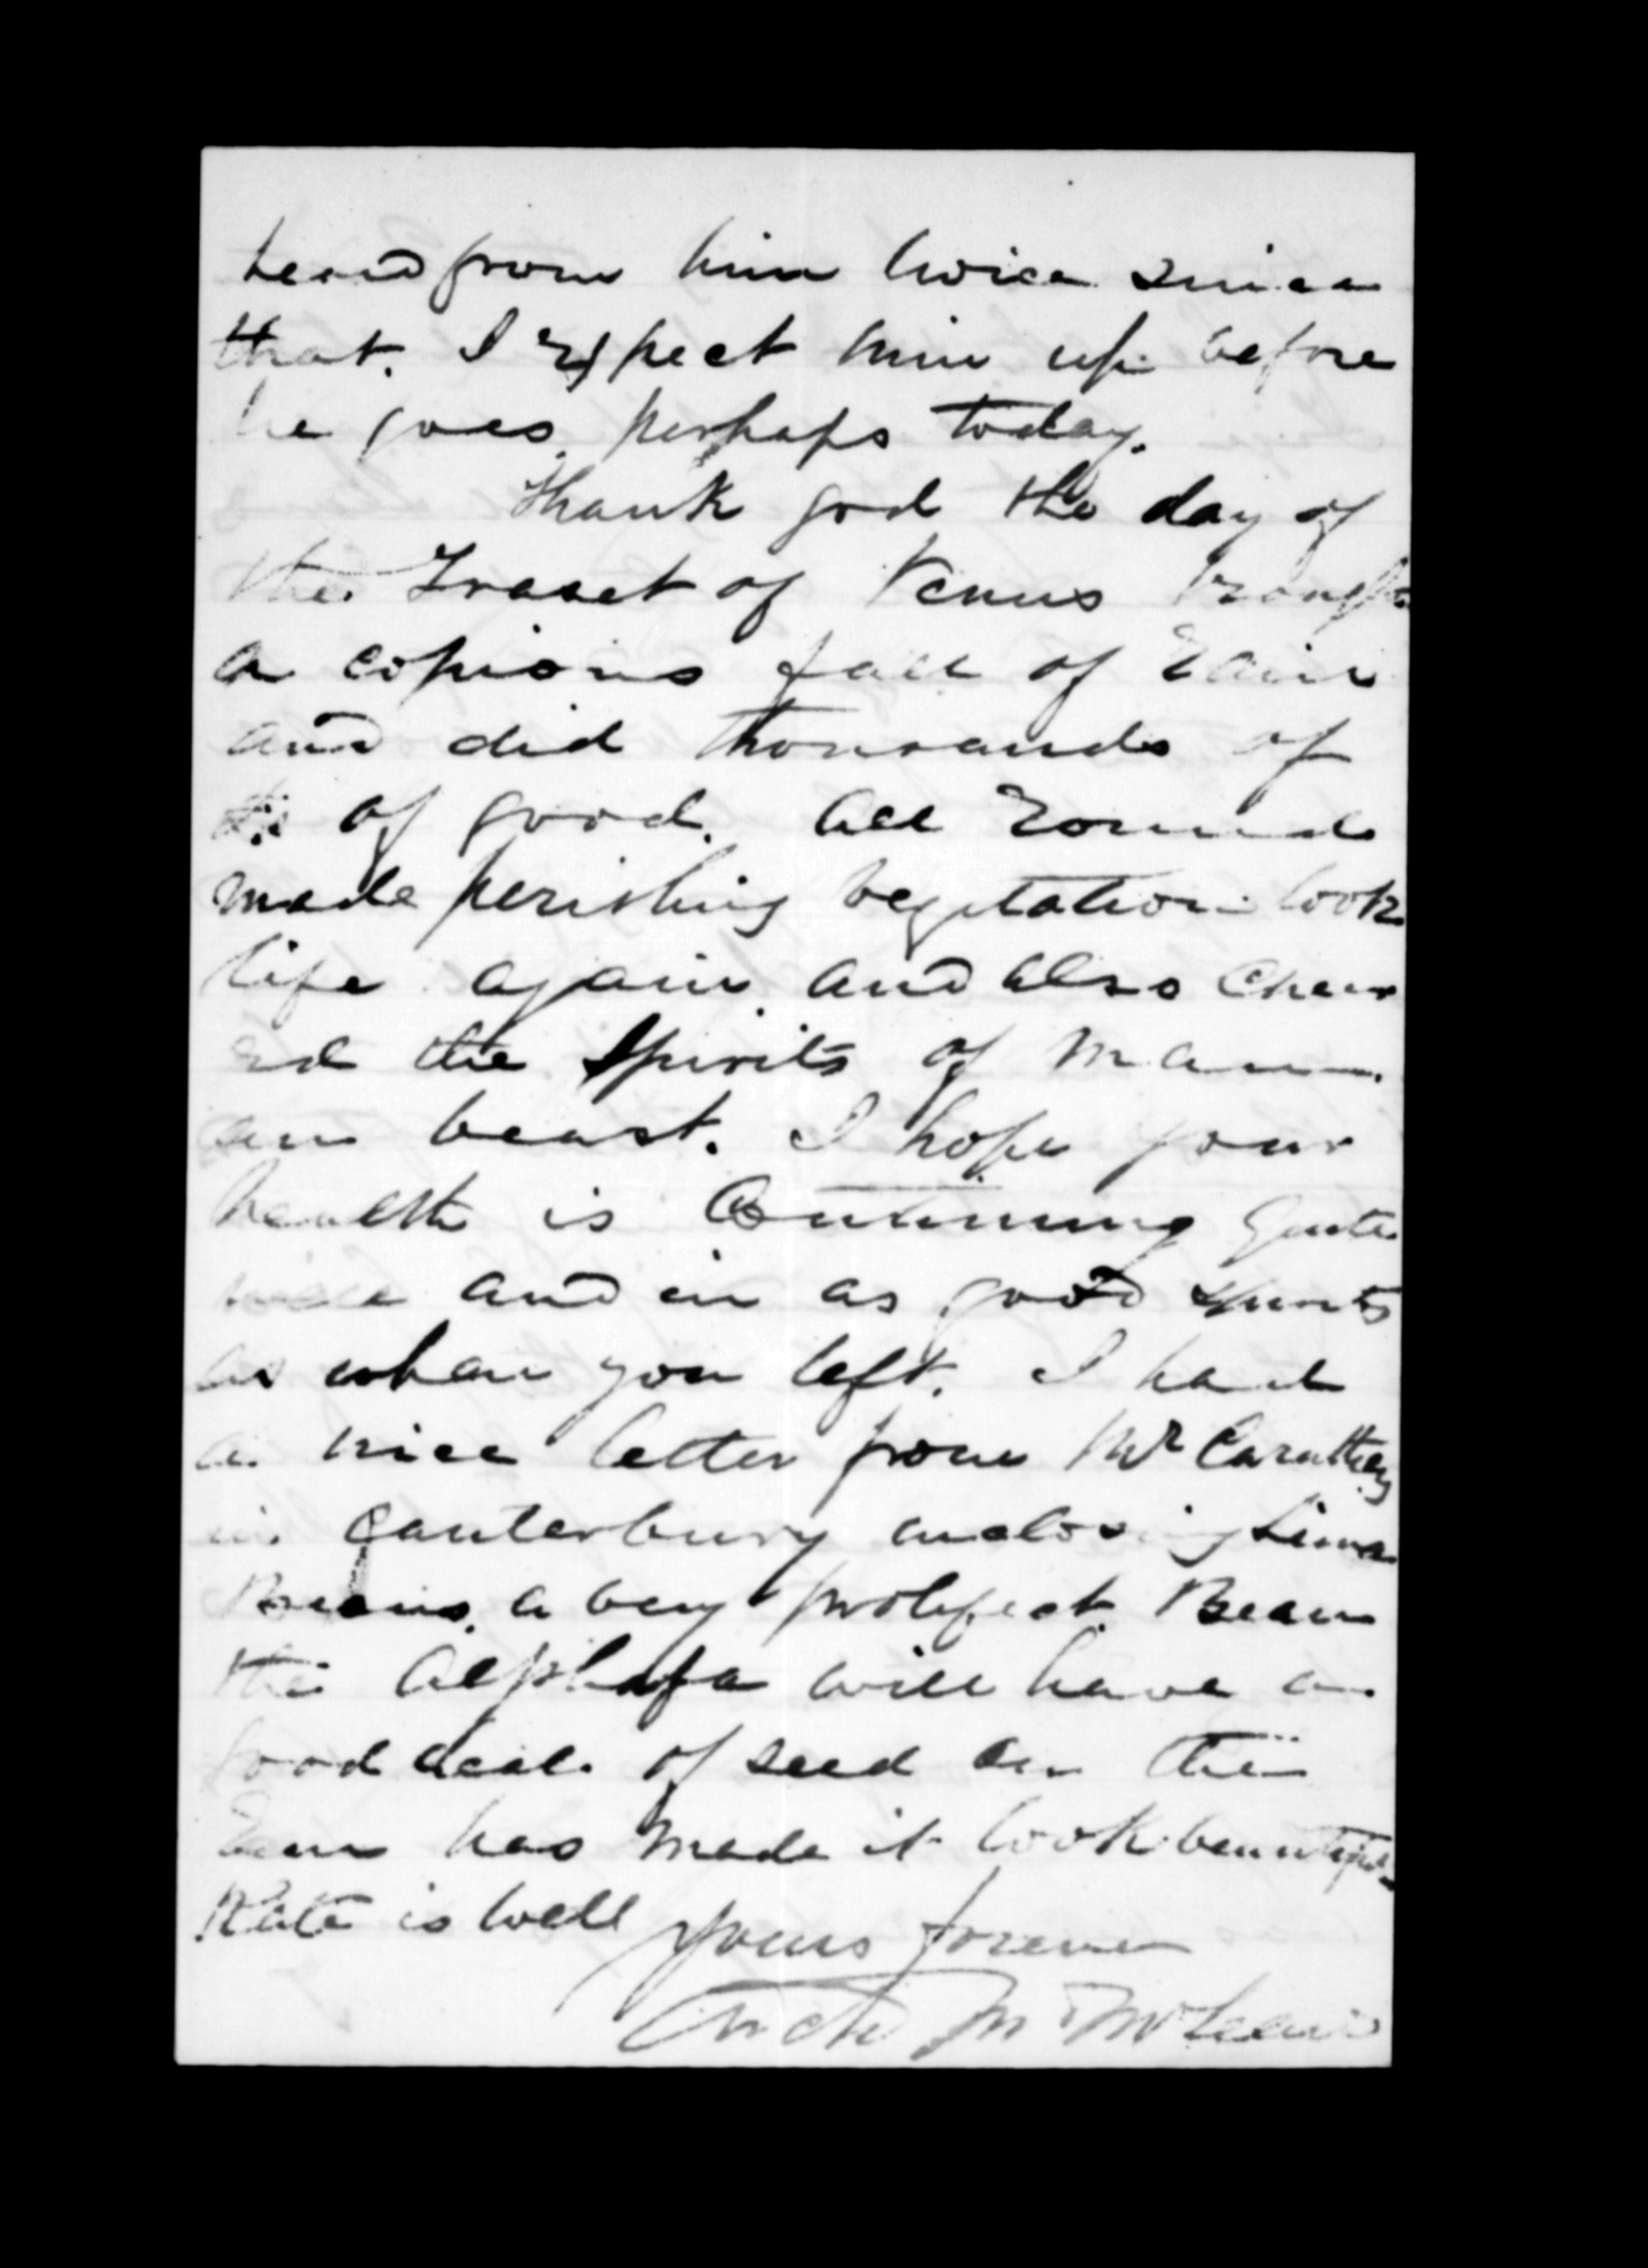 heard from him twice since
that. I expect him up before
he goes, perhaps today.
Thank god the day of
the Traset of Venus brought
a copious fall of rain
and did thousands of
£s of good. All round
made perishing vegitation look
life again, and also Chear
ed the Spirits of man
an beast. I hope your
health is Continuing quite
well and in as good spirits
as when you left. I had
a nice letter from Mr Caruthers
in Canterbury enclosing Lima
Beans, a very prolifect Bean
the Alphafa will have a
good deal of seed on the
rain has made it look beautiful
Kate is well yours forever
Archd M McLean